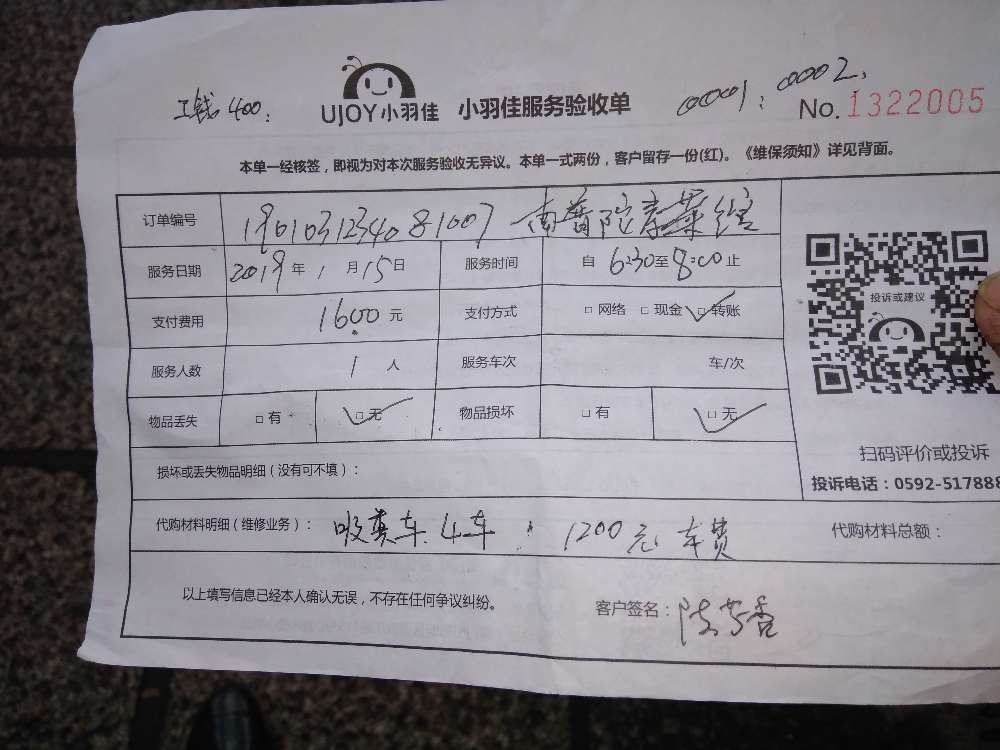 工钱400.
UJOY小羽佳 小羽佳服务验收单
0001.0002.
No.1322005
本单一经核签，即视为对本次服务验收无异议。本单一式两份，客户留存一份(红)。《维保须知》详见背面。
订单编号 1901031234081007 南普陀素菜馆
服务日期 2019年1月15日 服务时间 自6:30至8:00止
支付费用 1600元 支付方式 □网络 □现金 □转账
服务人数 1人 服务车次 车/次
物品丢失 □有 □无 物品损坏 □有 □无
投诉或建议
扫码评价或投诉
投诉电话：0592-517888
损坏或丢失物品明细（没有可不填）：
代购材料明细（维修业务）： 吸粪车4车 1200元 车费 代购材料总额：
以上填写信息已经本人确认无误，不存在任何争议纠纷。 客户签名：